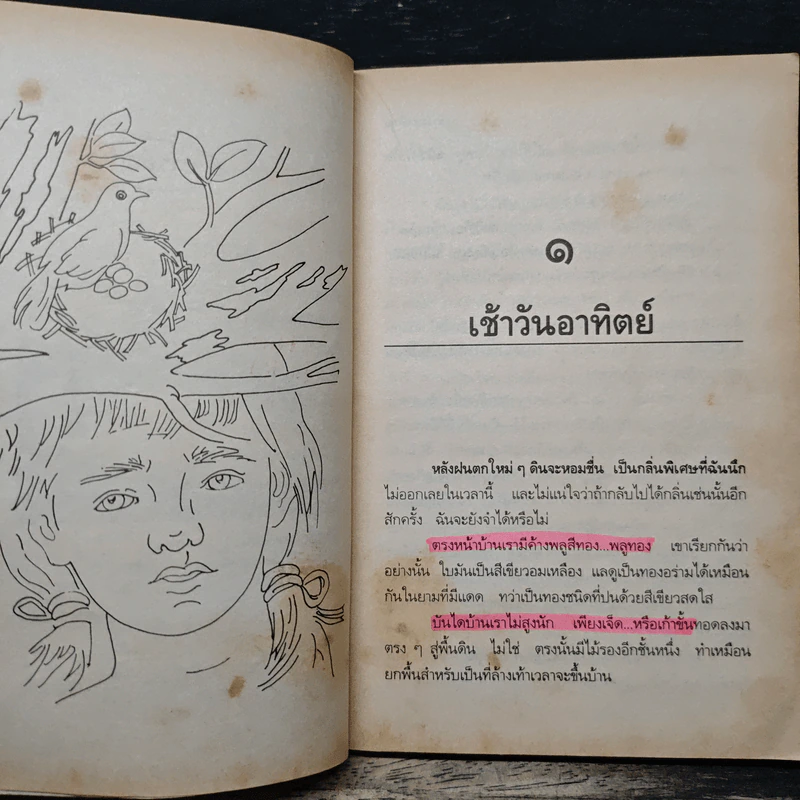 ๑
เช้าวันอาทิตย์
หลังฝนตกใหม่ ๆ ดินจะหอมชื่น เป็นกลิ่นพิเศษที่ฉันนึก
ไม่ออกเลยในเวลานี้ และไม่แน่ใจว่าถ้ากลับไปได้กลิ่นเช่นนั้นอีก
สักครั้ง ฉันจะยังจำได้หรือไม่
ตรงหน้าบ้านเรามีค้างพลูสีทอง...พลูทอง เขาเรียกกันว่า
อย่างนั้น ใบมันเป็นสีเขียวอมเหลือง แลดูเป็นทองอร่ามได้เหมือน
กันในยามที่มีแดด ทว่าเป็นทองชนิดที่ปนด้วยสีเขียวสดใส
บันไดบ้านเราไม่สูงนัก เพียงเจ็ด...หรือเก้าขั้นทอดลงมา
ตรง ๆ สู่พื้นดิน ไม่ใช่ ตรงนั้นมีไม้รองอีกชั้นหนึ่ง ทำเหมือน
ยกพื้นสำหรับเป็นที่ล้างเท้าเวลาจะขึ้นบ้าน